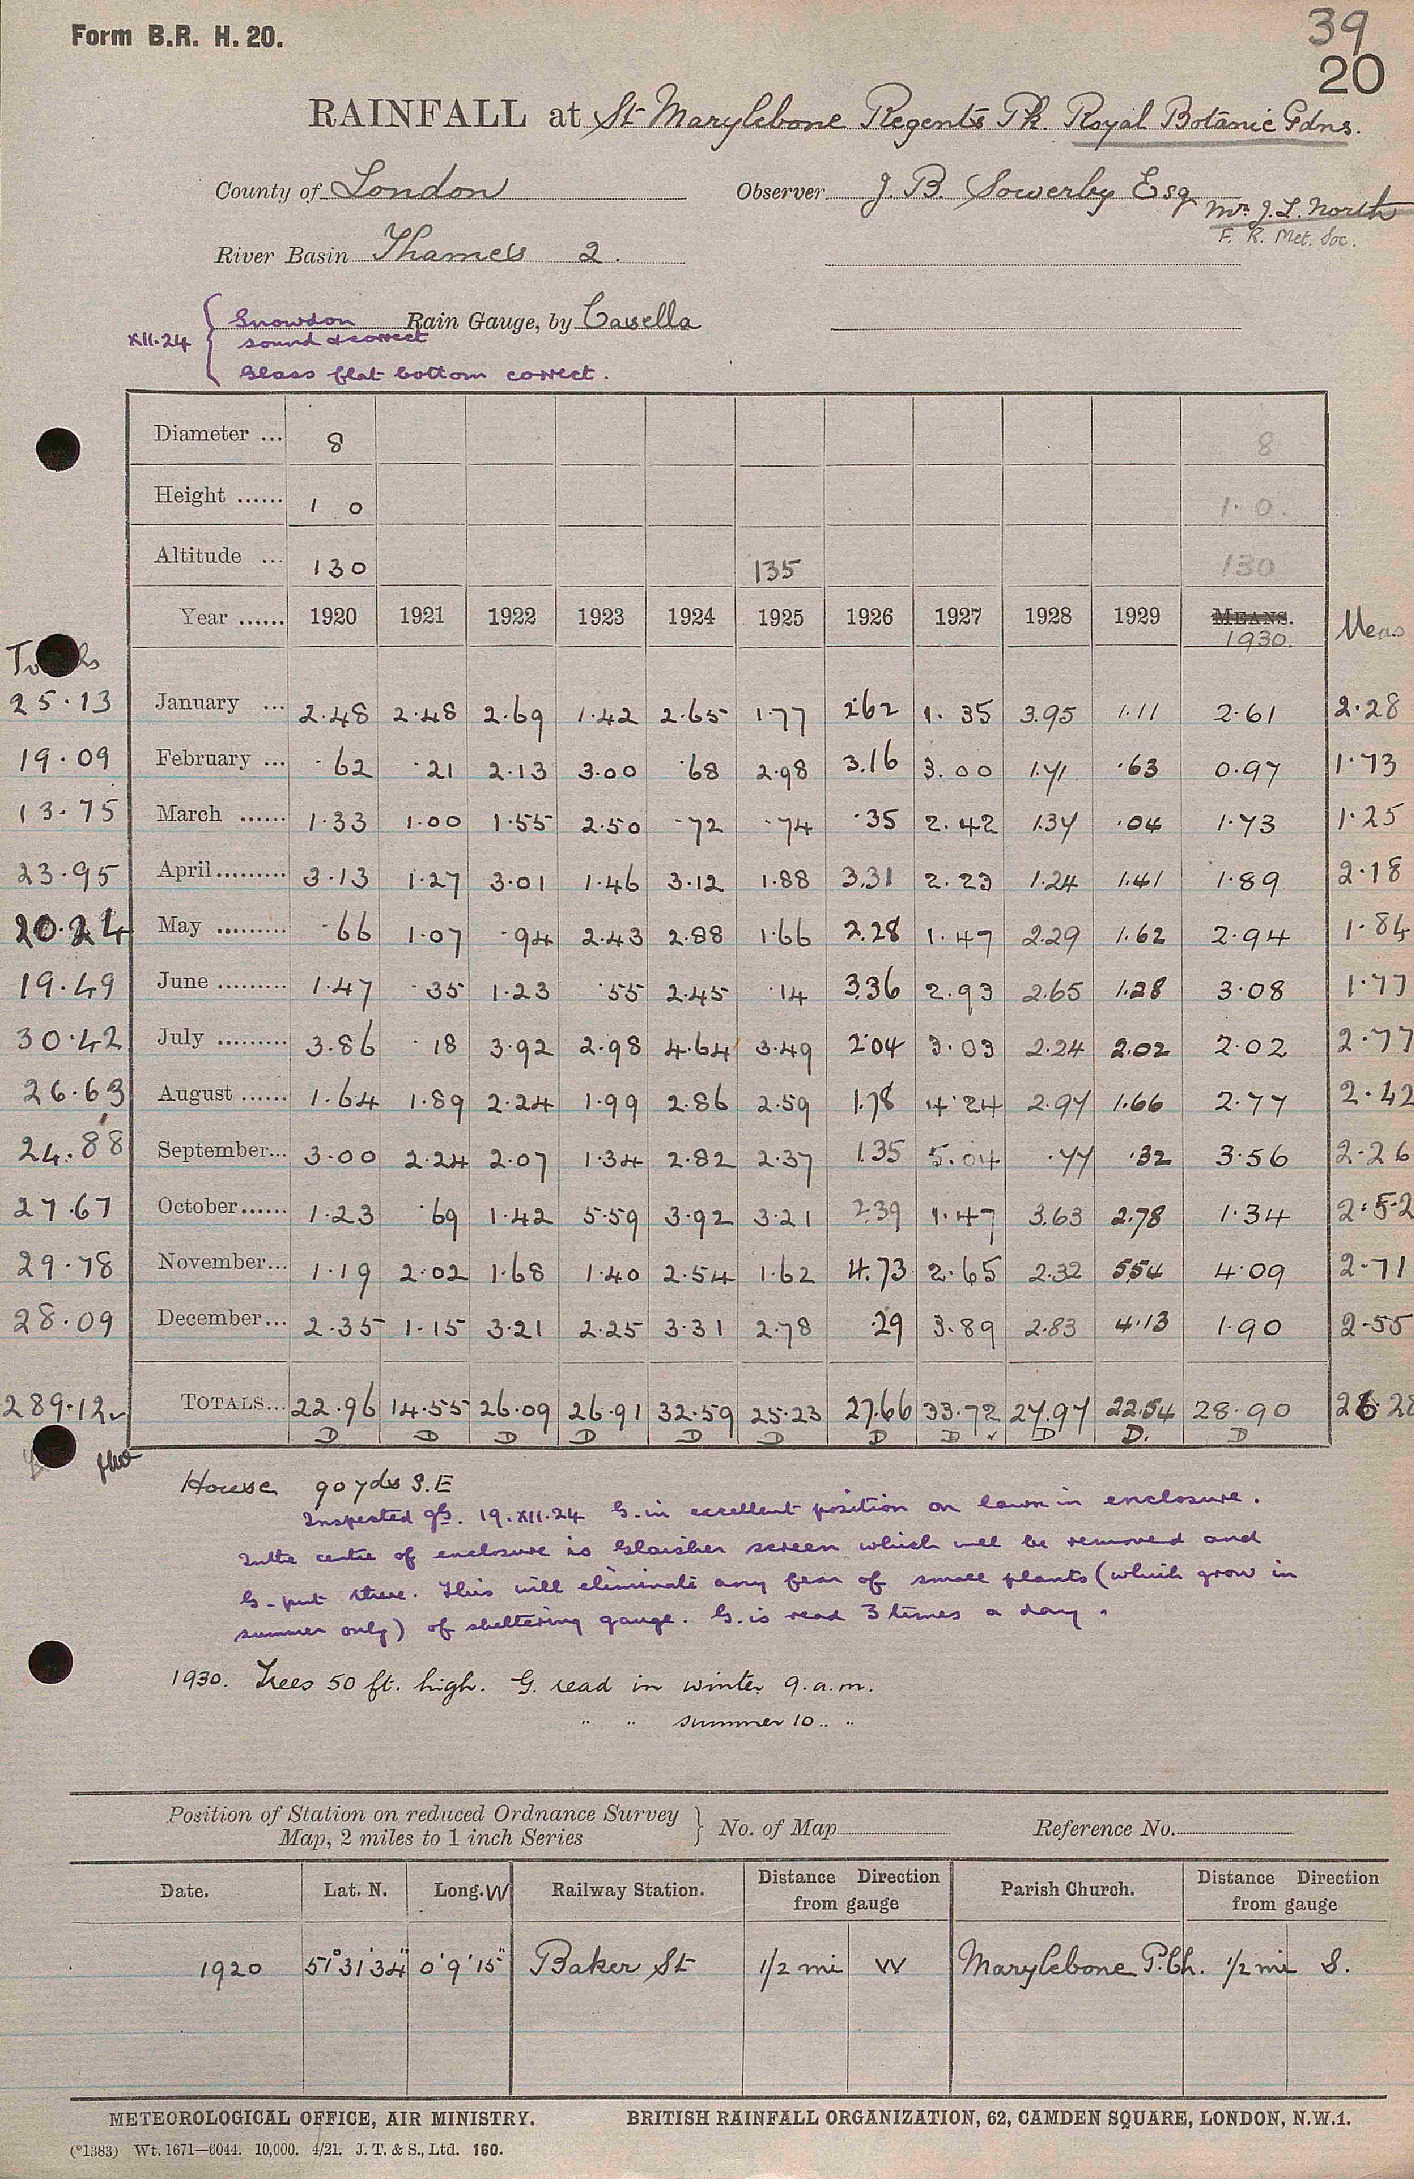 Form B.R. H. 20.
39
20
RAINFALL at St Marylebone Regents Pk. Royal Botanic Gdns.
County of London Observer J. B. Sowerby Esq Mr J. L. North
F. R. Met. Soc.
River Basin Thames 2.
XII.24 Snowdon Rain Gauge, by Casella
sound & correct
Glass flat bottom correct.
Diameter ... 8 8
Height ...... 1 0 1. 0.
Altitude ... 130 135 130
Year ...... 1920 1921 1922 1923 1924 1925 1926 1927 1928 1929 MEANS. 1930. Means
Totals
25.13 January ... 2.48 2.48 2.69 1.42 2.65 1.77 2.62 1.35 3.95 1.11 2.61 2.28
19.09 February ... .62 .21 2.13 3.00 .68 2.98 3.16 3.00 1.71 .63 0.97 1.73
13.75 March ...... 1.33 1.00 1.55 2.50 .72 .74 .35 2.42 1.37 .04 1.73 1.25
23.95 April ......... 3.13 1.27 3.01 1.46 3.12 1.88 3.31 2.23 1.24 1.41 1.89 2.18
20.24 May ......... .66 1.07 .94 2.43 2.88 1.66 2.28 1.47 2.29 1.62 2.94 1.84
19.49 June ......... 1.47 .35 1.23 .55 2.45 .14 3.36 2.93 2.65 1.28 3.08 1.77
30.42 July ......... 3.86 .18 3.92 2.98 4.64 3.49 2.04 3.03 2.24 2.02 2.02 2.77
26.63 August ...... 1.64 1.89 2.24 1.99 2.86 2.59 1.78 4.24 2.97 1.66 2.77 2.42
24.88 September... 3.00 2.24 2.07 1.34 2.82 2.37 1.35 5.04 .77 .32 3.56 2.26
27.67 October...... 1.23 .69 1.42 5.59 3.92 3.21 2.39 1.47 3.63 2.78 1.34 2.52
29.78 November... 1.19 2.02 1.68 1.40 2.54 1.62 4.73 2.65 2.32 5.54 4.09 2.71
28.09 December... 2.35 1.15 3.21 2.25 3.31 2.78 .29 3.89 2.83 4.13 1.90 2.55
289.12 TOTALS... 22.96 14.55 26.09 26.91 32.59 25.23 27.66 33.72 27.97 22.54 28.90 26.28
D D D D D D D D D D. D
House 90 yds S.E
Inspected 19.XII.24 G. in excellent position on lawn in enclosure.
In the centre of enclosure is Glaisher screen which will be removed and
G. put there. This will eliminate any fear of small plants (which grow in
summer only) of sheltering gauge. G. is read 3 times a day.
1930. Trees 50 ft. high. G. read in winter 9. a.m.
" " summer 10 " "
Position of Station on reduced Ordnance Survey
Map, 2 miles to 1 inch Series } No. of Map Reference No.
Date. Lat. N. Long. W Railway Station. Distance Direction from gauge Parish Church. Distance Direction from gauge
1920 51° 31' 34" 0° 9' 15" Baker St 1/2 mi W Marylebone P. Ch. 1/2 mi S.
METEOROLOGICAL OFFICE, AIR MINISTRY. BRITISH RAINFALL ORGANIZATION, 62, CAMDEN SQUARE, LONDON, N.W.1.
(*1383) Wt. 1671—6044. 10,000. 4/21. J. T. & S., Ltd. 160.